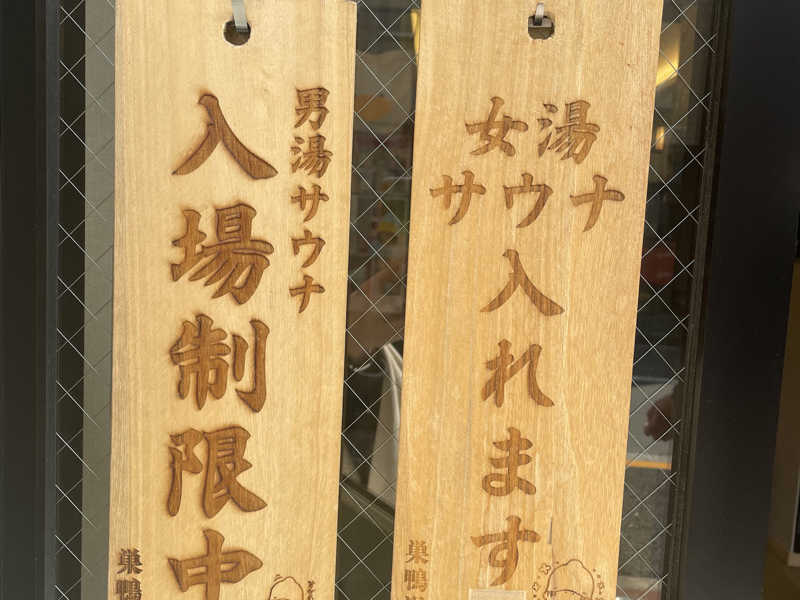 男湯サウナ
入場制限中
巣鴨
女湯
サウナ
入れます
巣鴨